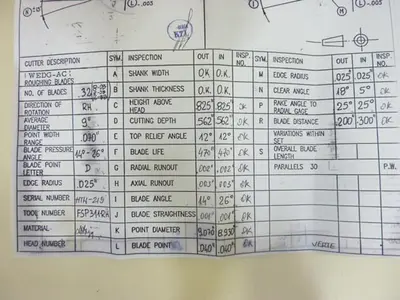 L .005
M
KIT
CUTTER DESCRIPTION SYM. INSPECTION OUT IN INSP. NO. SYM. INSPECTION OUT IN INSP. NO.
(WEDG-AC) ROUGHING BLADES A SHANK WIDTH O.K. O.K. M EDGE RADIUS .025" .025" OK
NO. OF BLADES 32 B SHANK THICKNESS O.K. O.K. N CLEAR ANGLE 18° 5° OK
DIRECTION OF ROTATION RH C HEIGHT ABOVE HEAD .825" .825" OK P RAKE ANGLE TO RADIAL GAGE 25° 25° OK
AVERAGE DIAMETER 9" D CUTTING DEPTH .562" .562" OK R BLADE DISTANCE .200" .300" OK
POINT WIDTH RANGE .080" E TOP RELIEF ANGLE 12° 12° OK VARIATIONS WITHIN SET
BLADE PRESSURE ANGLE 14°-26° F BLADE LIFE .470" .470" OK S OVERALL BLADE LENGTH
BLADE POINT LETTER D G RADIAL RUNOUT .002" .002" OK PARALLELS 30 P.W.
EDGE RADIUS .025" H AXIAL RUNOUT .003" .003" OK
SERIAL NUMBER I BLADE ANGLE 14° 26° OK
TOOL NUMBER J BLADE STRAIGHTNESS .001" .001" OK
MATERIAL K POINT DIAMETER 9.070" 8.930" OK
HEAD NUMBER L BLADE POINT .040" .040" OK